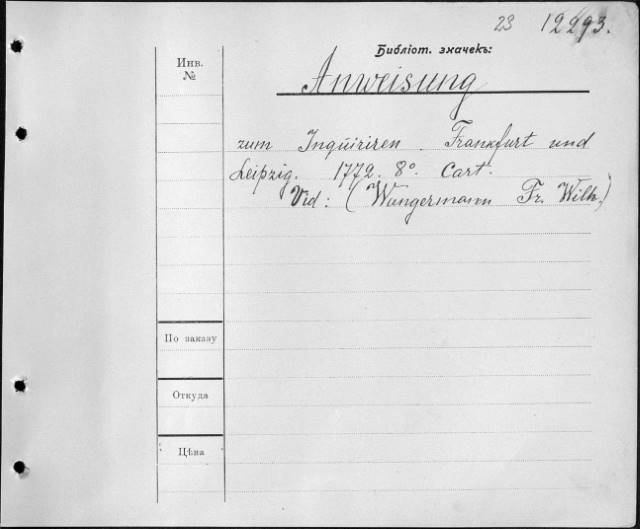 23 12293.
Библіот. значекъ:
Инв.
№
Anweisung
zum Inquiriren. Frankfurt und
Leipzig. 1772. 8º. Cart.
Vid: (Wangermann Fr. Wilh.)
По заказу
Откуда
Цѣна